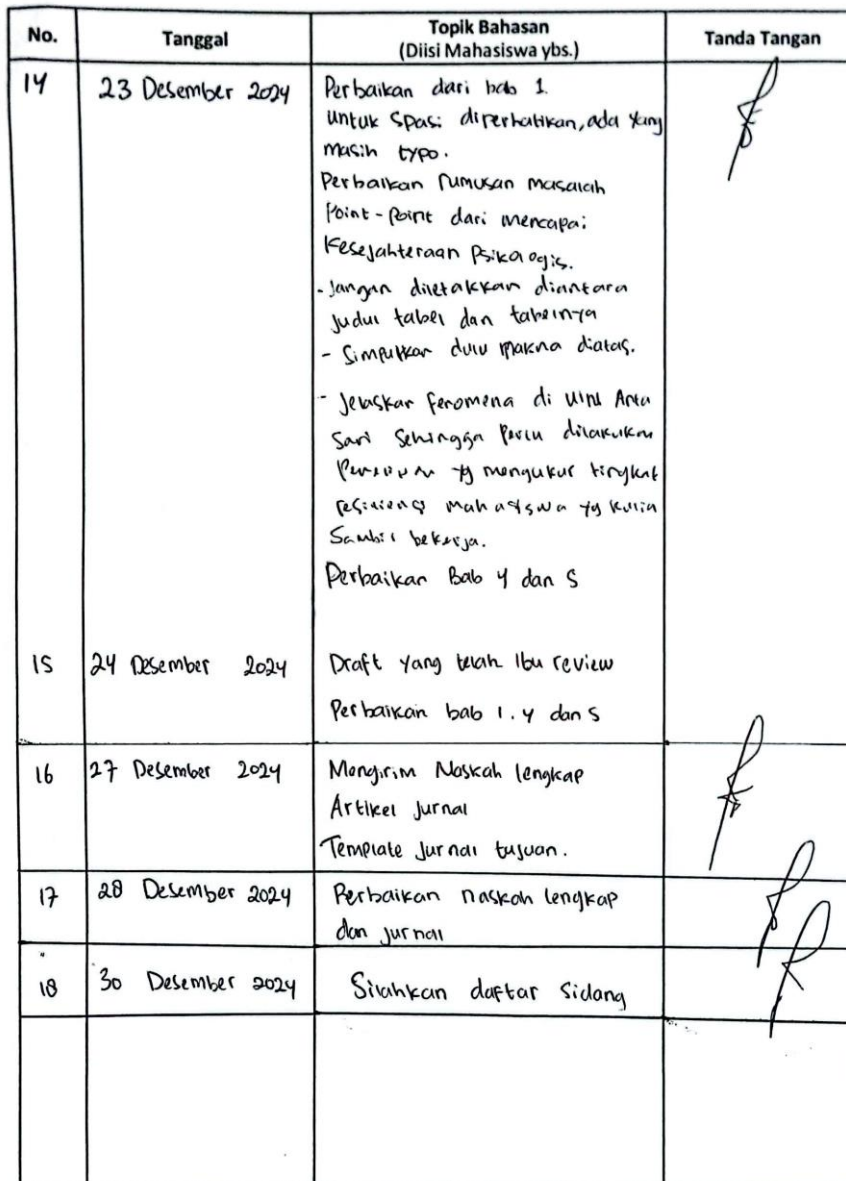 No. Tanggal Topik Bahasan Tanda Tangan
(Diisi Mahasiswa ybs.)
14 23 Desember 2024 Perbaikan dari bab 1.
untuk spasi diperhatikan, ada yang
masih typo.
Perbaikan rumusan masalah
Point-Point dari mencapai
Kesejahteraan Psikologis.
- Jangan diletakkan diantara
judul tabel dan tabelnya
- Simpulkan dulu makna diatas.
- Jelaskan fenomena di UIN Anta
Sari Sehingga Perlu dilakukan
yg mengukur tingkat
resiliensi mahasiswa yg kulia
Sambil bekerja.
Perbaikan Bab 4 dan 5
15 24 Desember 2024 Draft yang telah Ibu review
Perbaikan bab 1. 4 dan 5
16 27 Desember 2024 Mengirim Naskah lengkap
Artikel Jurnal
Template Jurnal tujuan.
17 28 Desember 2024 Perbaikan naskah lengkap
dan jurnal
18 30 Desember 2024 Silahkan daftar Sidang